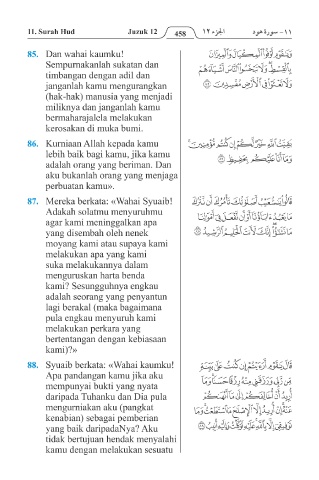 11. Surah Hud Juzuk 12 458 الجزء ١٢ ١١ - سورة هود
85. Dan wahai kaumku!
Sempurnakanlah sukatan dan
timbangan dengan adil dan
janganlah kamu mengurangkan
(hak-hak) manusia yang menjadi
miliknya dan janganlah kamu
bermaharajalela melakukan
kerosakan di muka bumi.
وَيَٰقَوْمِ أَوْفُوا۟ ٱلْمِكْيَالَ وَٱلْمِيزَانَ
بِٱلْقِسْطِ وَلَا تَبْخَسُوا۟ ٱلنَّاسَ أَشْيَآءَهُمْ
وَلَا تَعْثَوْا۟ فِى ٱلْأَرْضِ مُفْسِدِينَ ٨٥
86. Kurniaan Allah kepada kamu
lebih baik bagi kamu, jika kamu
adalah orang yang beriman. Dan
aku bukanlah orang yang menjaga
perbuatan kamu».
بَقِيَّتُ ٱللَّهِ خَيْرٌ لَّكُمْ إِن كُنتُم مُّؤْمِنِينَ
وَمَآ أَنَا۠ عَلَيْكُم بِحَفِيظٍ ٨٦
87. Mereka berkata: «Wahai Syuaib!
Adakah solatmu menyuruhmu
agar kami meninggalkan apa
yang disembah oleh nenek
moyang kami atau supaya kami
melakukan apa yang kami
suka melakukannya dalam
menguruskan harta benda
kami? Sesungguhnya engkau
adalah seorang yang penyantun
lagi berakal (maka bagaimana
pula engkau menyuruh kami
melakukan perkara yang
bertentangan dengan kebiasaan
kami)?»
قَالُوا۟ يَٰشُعَيْبُ أَصَلَوٰتُكَ تَأْمُرُكَ أَن نَّتْرُكَ
مَا يَعْبُدُ ءَابَآؤُنَآ أَوْ أَن نَّفْعَلَ فِىٓ أَمْوَٰلِنَا
مَا نَشَٰٓؤُا۟ إِنَّكَ لَأَنتَ ٱلْحَلِيمُ ٱلرَّشِيدُ ٨٧
88. Syuaib berkata: «Wahai kaumku!
Apa pandangan kamu jika aku
mempunyai bukti yang nyata
daripada Tuhanku dan Dia pula
mengurniakan aku (pangkat
kenabian) sebagai pemberian
yang baik daripadaNya? Aku
tidak bertujuan hendak menyalahi
kamu dengan melakukan sesuatu
قَالَ يَٰقَوْمِ أَرَءَيْتُمْ إِن كُنتُ عَلَىٰ بَيِّنَةٍ
مِّن رَّبِّى وَرَزَقَنِى مِنْهُ رِزْقًا حَسَنًا وَمَآ
أُرِيدُ أَنْ أُخَالِفَكُمْ إِلَىٰ مَآ أَنْهَىٰكُمْ
عَنْهُ إِنْ أُرِيدُ إِلَّا ٱلْإِصْلَٰحَ مَا ٱسْتَطَعْتُ وَمَا
تَوْفِيقِىٓ إِلَّا بِٱللَّهِ عَلَيْهِ تَوَكَّلْتُ وَإِلَيْهِ أُنِيبُ ٨٨